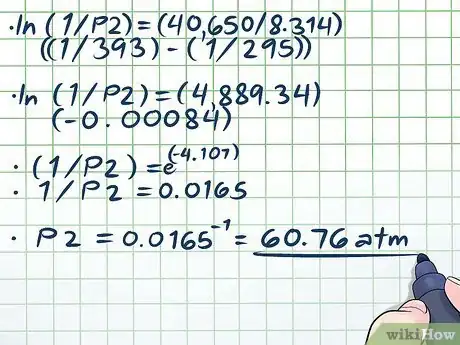 •ln (1/P2)=(40,650/8.314)
((1/393)-(1/295))
•ln (1/P2)=(4,889.34)
(-0.00084)
• (1/P2)=e^(-4.107)
• 1/P2=0.0165
• P2=0.0165⁻¹=60.76 atm
wikiHow